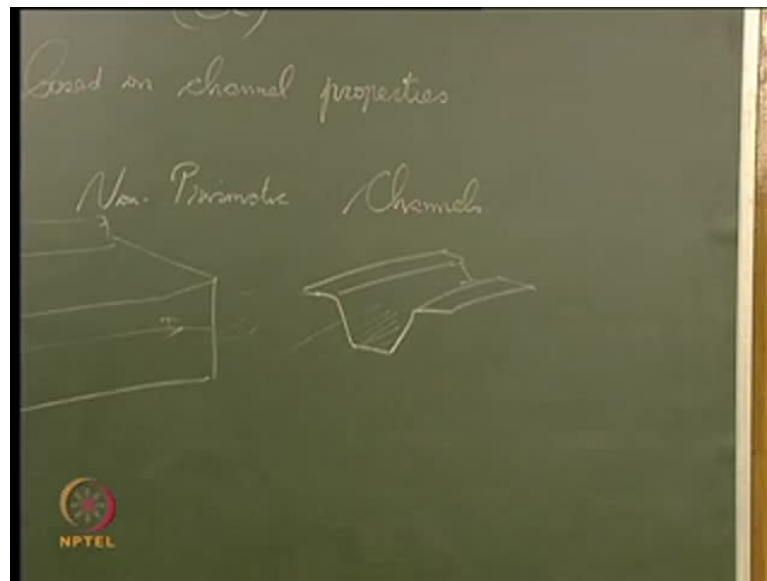 based on channel properties
Non-Prismatic Channels
NPTEL